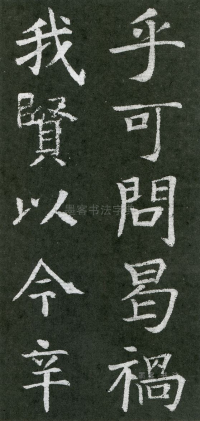 乎可問曷禍
我賢以令辛
墨客书法字